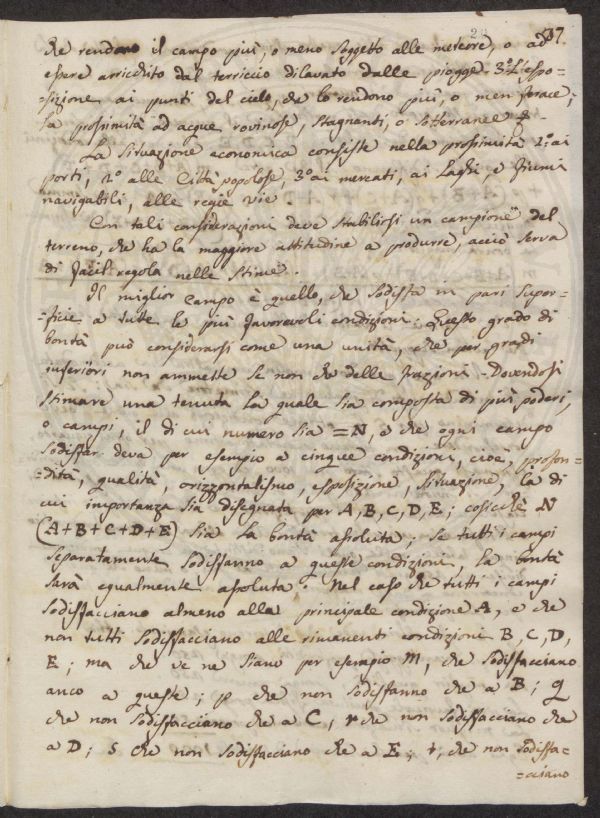 37
che rendono il campo più, o meno soggetto alle meteore, o ad
essere arricchito dal terriccio dilavato dalle piogge. 3.° L'espo-
-sizione ai punti del cielo, che lo rendono più, o men ferace;
la prossimità ad acque rovinose, stagnanti, o sotterranee
La situazione economica consiste nella prossimità 1.° ai
porti, 2.° alle Città popolose, 3.° ai mercati, ai Laghi e Fiumi
navigabili, alle regie vie.
Con tali considerazioni deve stabilirsi un campione del
terreno, che ha la maggiore attitudine a produrre, acciò serva
di facil regola nelle stime.
Il miglior campo è quello, che sodisfa in pari super-
-ficie a tutte le più favorevoli condizioni. Questo grado di
bontà può considerarsi come una unità, che per gradi
inferiori non ammette se non che delle frazioni. Dovendosi
stimare una tenuta la quale sia composta di più poderi,
o campi, il di cui numero sia = N, e che ogni campo
sodisfar deva per esempio a cinque condizioni, cioè, profon-
-dità, qualità, orizzontalismo, esposizione, situazione, la di
cui importanza sia disegnata per A, B, C, D, E; cosicchè N
(A+B+C+D+E) sia la bontà assoluta; se tutti i campi
separatamente sodisfanno a queste condizioni, la bontà
sarà egualmente assoluta. Nel caso che tutti i campi
sodisfacciano almeno alla principale condizione A, e che
non tutti sodisfacciano alle rimanenti condizioni B, C, D,
E; ma che ve ne siano per esempio m, che sodisfacciano
anco a queste; p che non sodisfanno che a B; q
che non sodisfacciano che a C, r che non sodisfacciano che
a D; s che non sodisfacciano che a E; t, che non sodisfa-
=cciano